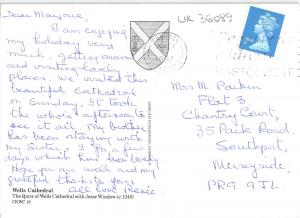 Dear Marjorie,
I am enjoying
my holiday very
much, getting around
and visiting lovely
places. We visited this
beautiful Cathedral
on Sunday. It took
the whole afternoon to
see it all. My brother
has been staying with
my Sister & I a few
days which has been lovely
Hope you are well and my
grateful thanks for
all love Renée.
Wells Cathedral
The Quire of Wells Cathedral with Jesse Window (c. 1340)
CIOWC 18
UK 36089
Mrs M. Parkin
Flat 3
Chantry Court,
35 Park Road
Southport,
Merseyside
PR9 9JL